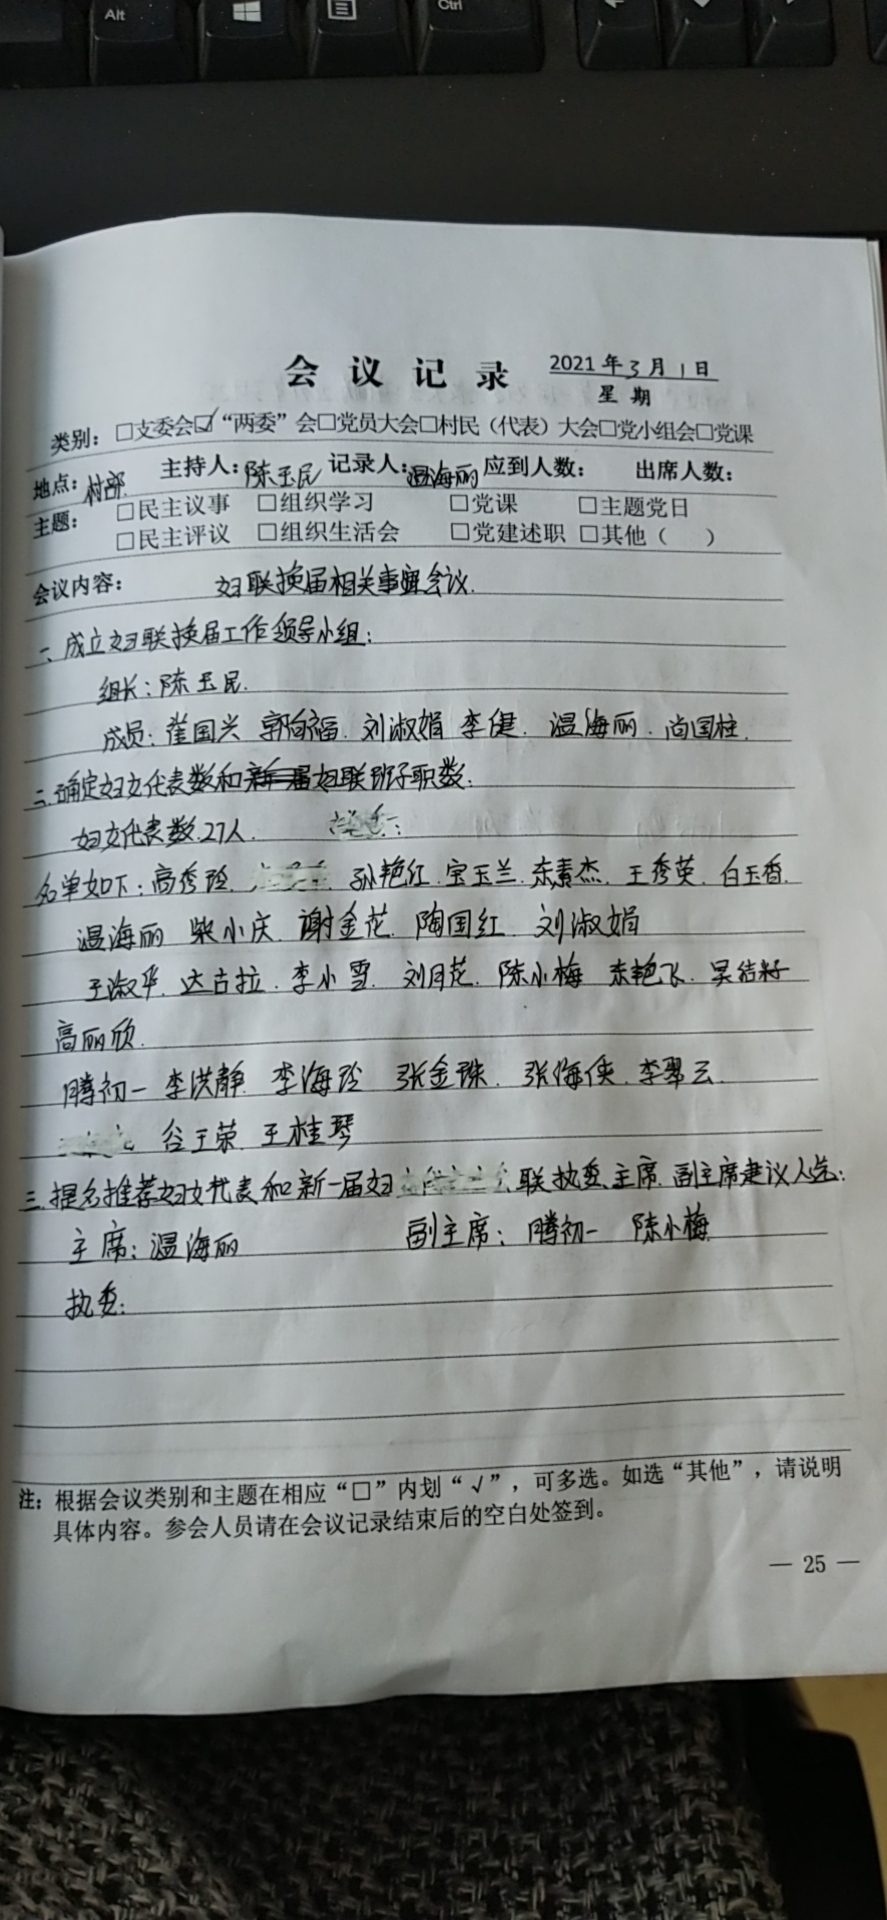 Alt
Ctrl
会议记录 2021年3月1日
星期
类别：□支委会☑“两委”会□党员大会□村民（代表）大会□党小组会□党课
地点：村部 主持人：陈玉民 记录人：温海丽 应到人数： 出席人数：
主题： □民主议事 □组织学习 □党课 □主题党日
□民主评议 □组织生活会 □党建述职 □其他（ ）
会议内容： 妇联换届相关事宜会议.
一、成立妇联换届工作领导小组：
组长：陈玉民.
成员：崔国兴 郭百福. 刘淑娟 李健. 温海丽. 尚国柱.
二.确定妇女代表数和妇联班子职数：
妇女代表数.27人.
名单如下：高秀玲. 孙艳红.宝玉兰.东素杰. 王秀英. 白玉香.
温海丽 柴小庆. 谢金花. 陶国红. 刘淑娟
王淑华. 达古拉. 李小雪. 刘月花. 陈小梅 东艳飞. 吴结籽
高丽欣.
腾初一 李洪静 李海玲 张金珠. 张海侠. 李翠云.
谷玉荣. 王桂琴
三.提名推荐妇女代表和新一届妇联执委、主席.副主席建议人选：
主席：温海丽 副主席：腾初一 陈小梅
执委：
注：根据会议类别和主题在相应“□”内划“√”，可多选。如选“其他”，请说明
具体内容。参会人员请在会议记录结束后的空白处签到。
— 25 —